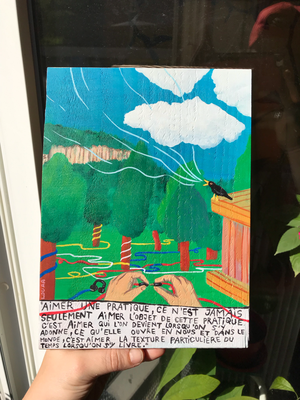 "AIMER UNE PRATIQUE, CE N'EST JAMAIS
SEULEMENT AIMER L'OBJET DE CETTE PRATIQUE
C'EST AIMER QUI L'ON DEVIENT LORSQU'ON S'Y
ADONNE, CE QU'ELLE OUVRE EN NOUS ET DANS LE
MONDE, C'EST AIMER LA TEXTURE PARTICULIÈRE DU
TEMPS LORSQU'ON S'Y LIVRE."